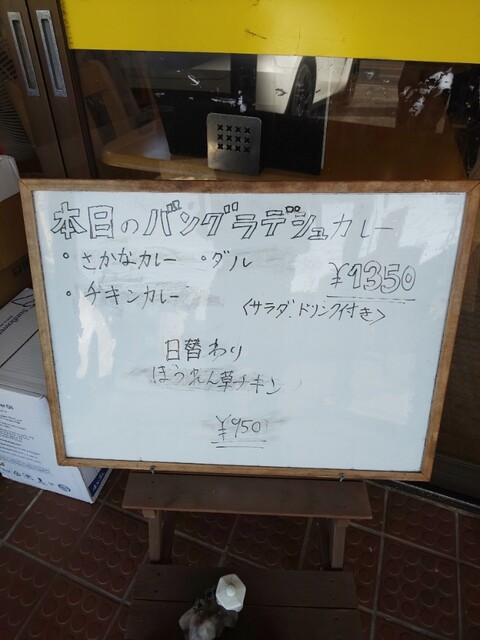 本日のバングラデシュカレー
・さかなカレー ・ダル
¥1350
・チキンカレー
〈サラダ.ドリンク付き〉
日替わり
ほうれん草チキン
¥950